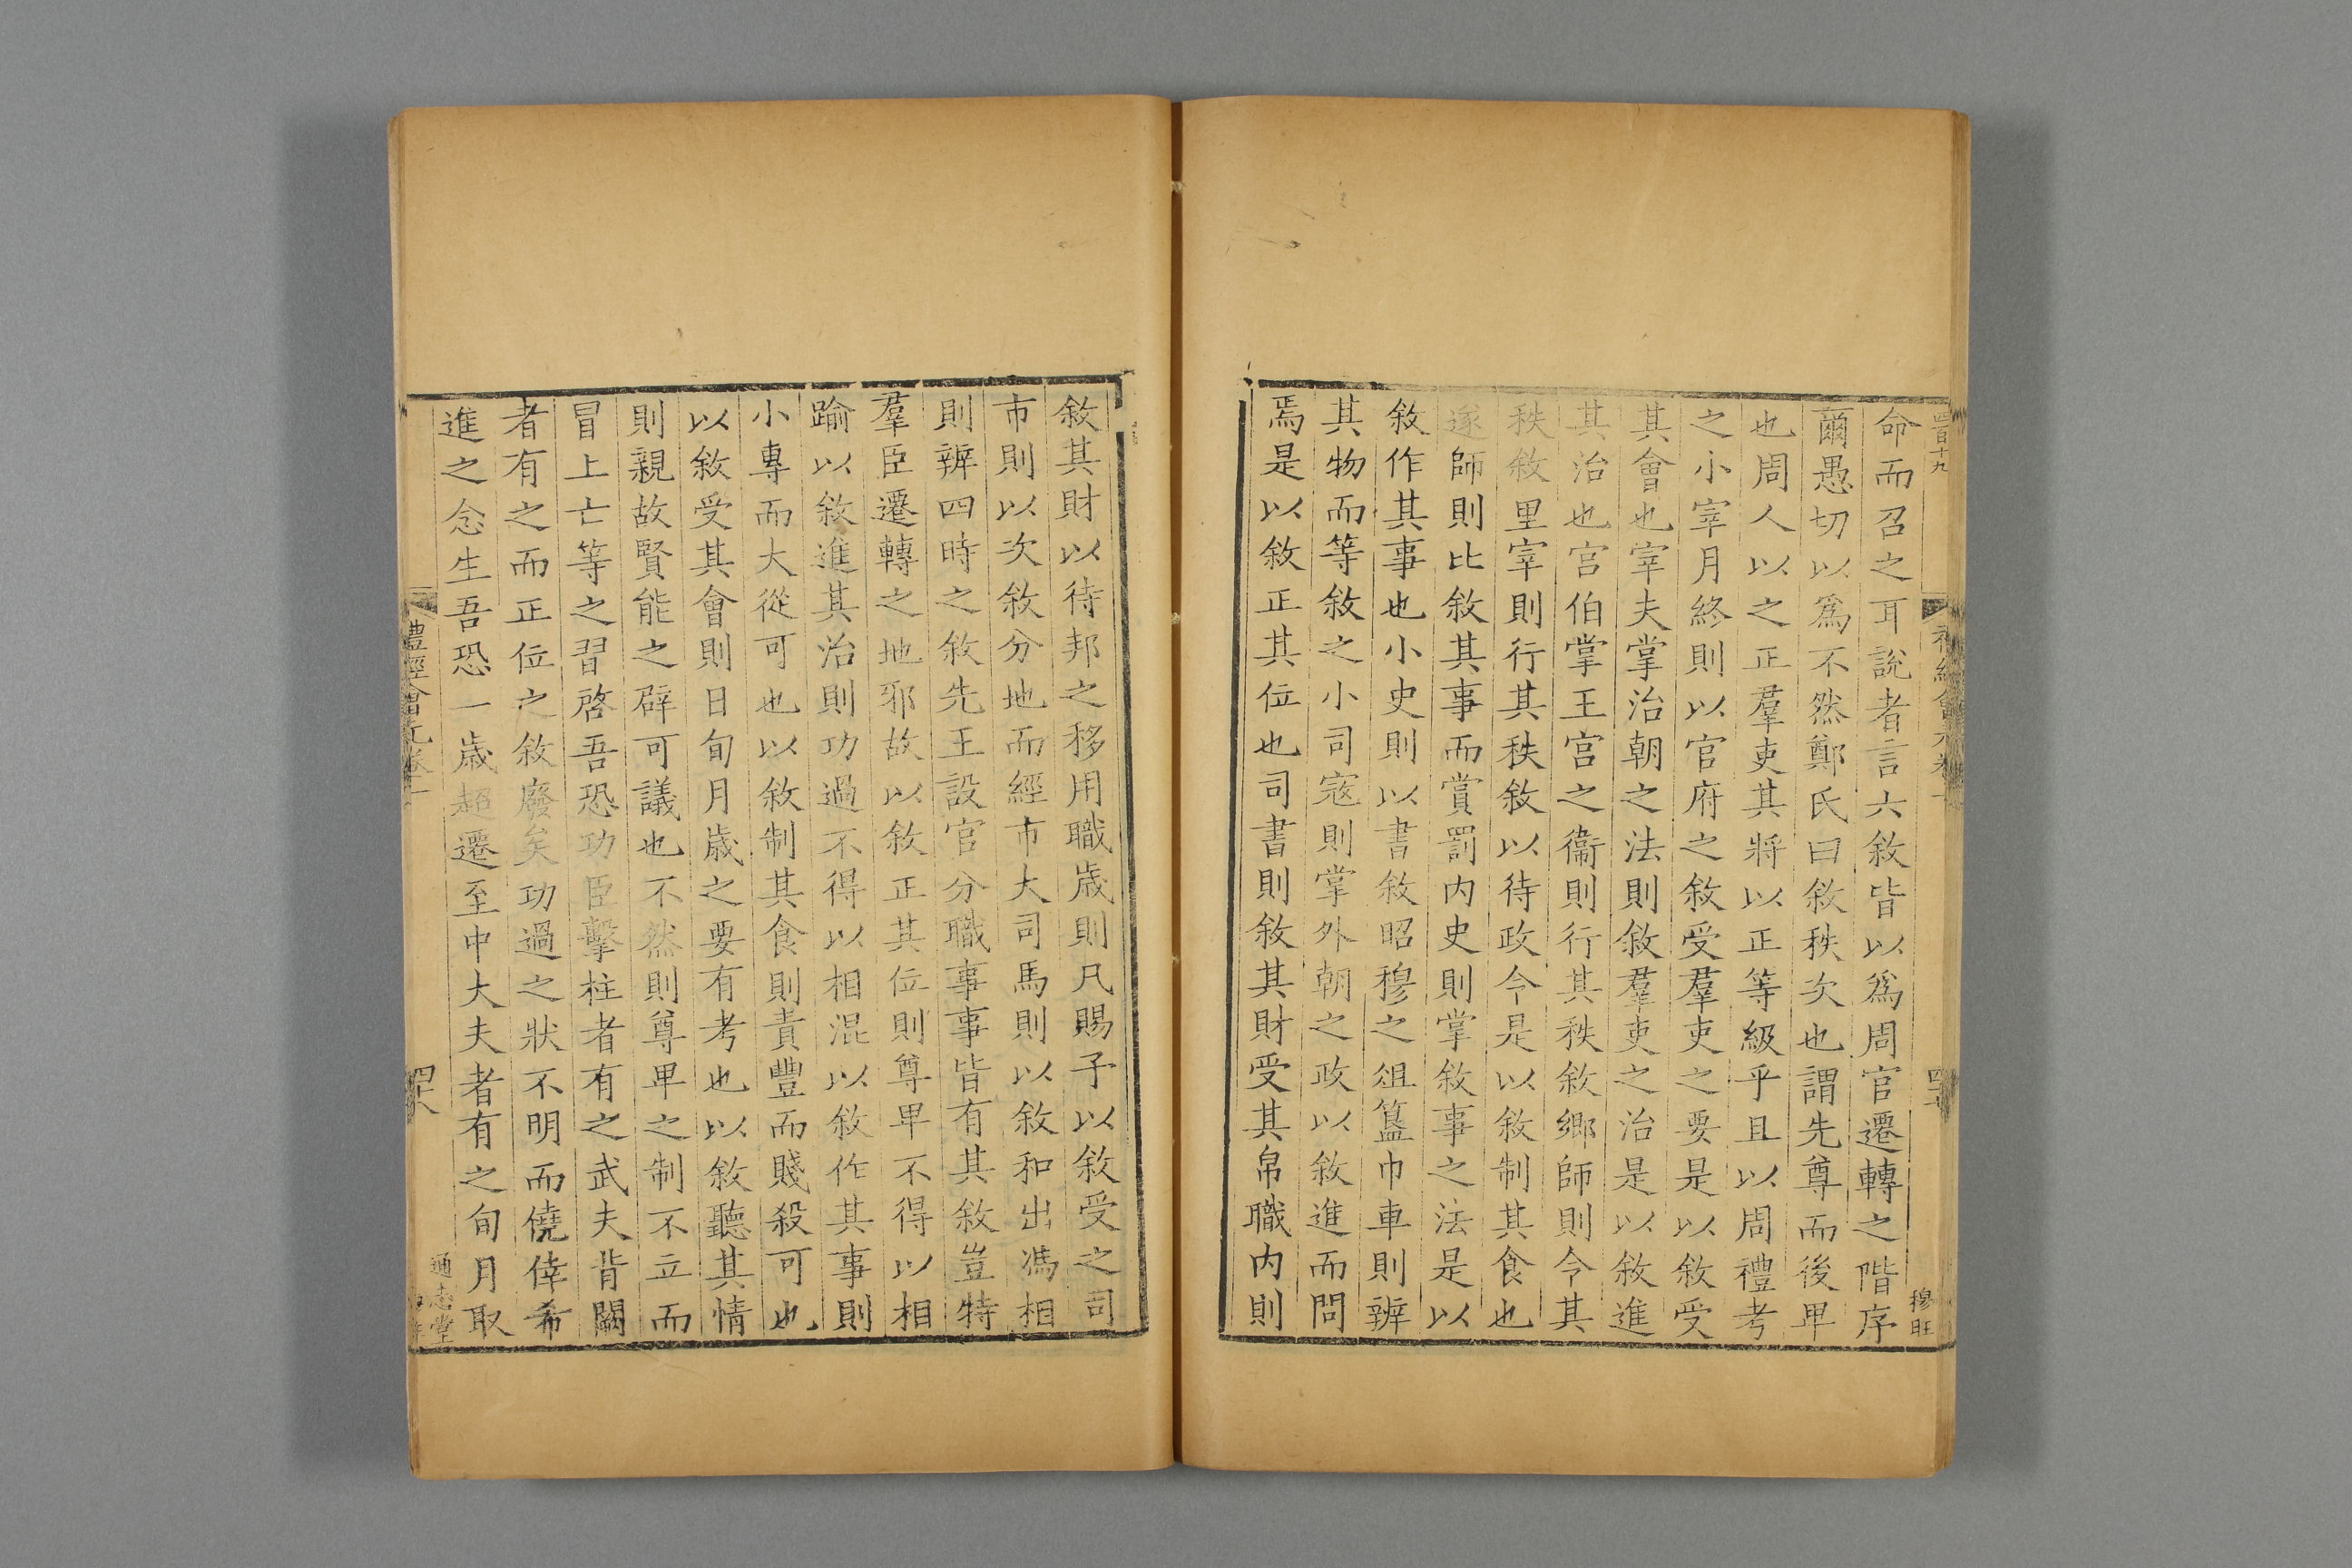 命而召之耳說者言六敘皆以爲周官遷轉之階序
爾愚切以爲不然鄭氏曰敘秩次也謂先尊而後卑
也周人以之正羣吏其將以正等級乎且以周禮考
之小宰月終則以官府之敘受羣吏之要是以敘受
其會也宰夫掌治朝之法則敘羣吏之治是以敘進
其治也宫伯掌王宫之衞則行其秩敘鄉師則令其
秩敘里宰則行其秩敘以待政令是以敘制其食也
遂師則比敘其事而賞罰内史則掌敘事之法是以
敘作其事也小史則以書敘昭穆之俎簋巾車則辨
其物而等敘之小司寇則掌外朝之政以敘進而問
焉是以敘正其位也司書則敘其財受其帛職内則
穆旺
敘其財以待邦之移用職歲則凡賜予以敘受之司
市則以次敘分地而經市大司馬則以敘和出馮相
則辨四時之敘先王設官分職事事皆有其敘豈特
羣臣遷轉之地邪故以敘正其位則尊卑不得以相
踰以敘進其治則功過不得以相混以敘作其事則
小專而大從可也以敘制其食則責豐而賤殺可也
以敘受其會則日旬月歲之要有考也以敘聽其情
則親故賢能之辟可議也不然則尊卑之制不立而
冒上亡等之習啓吾恐功臣擊柱者有之武夫背闕
者有之而正位之敘廢矣功過之狀不明而僥倖希
進之念生吾恐一歲超遷至中大夫者有之旬月取
禮經會元卷一
四十八
通志堂